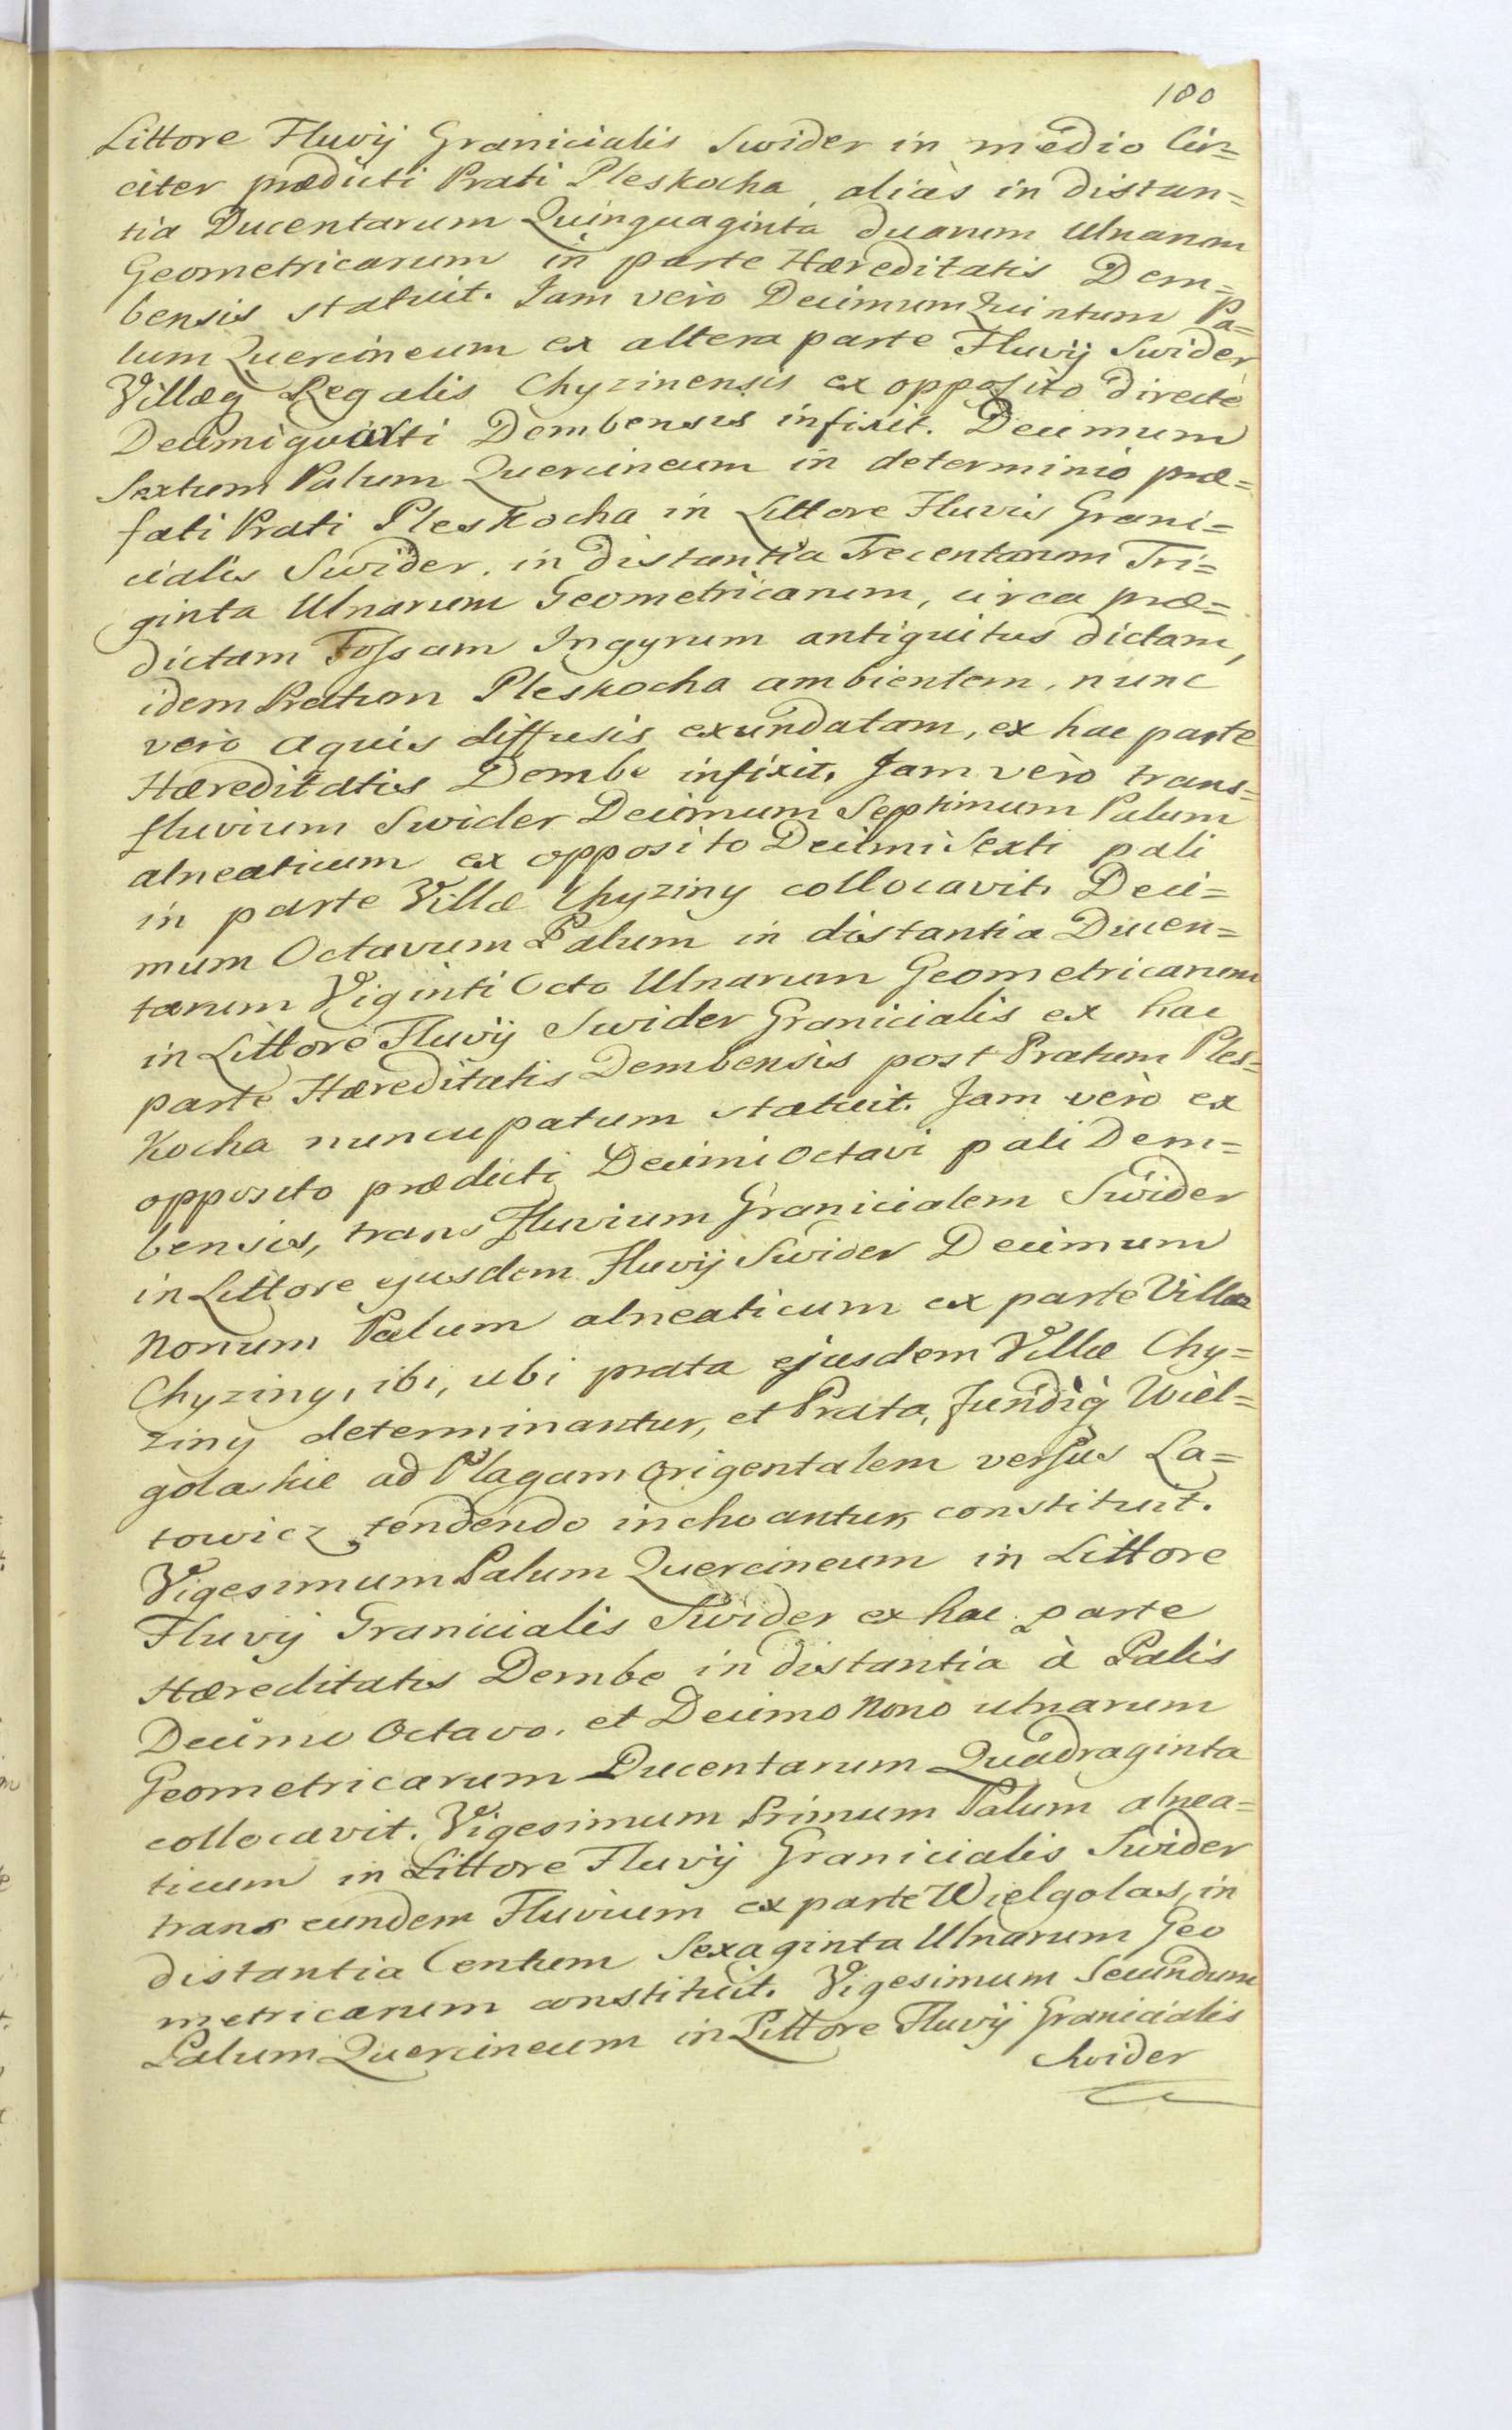 180
Littore Fluvij Granicialis Swider in medio Cir=
citer prædicti Prati Pleskocha, aliàs in distan=
tia Ducentarum Quinquaginta duarum Ulnarum
Geometricarum in parte Hæreditatis Dem=
bensis statuit. Iam verò Decimum Quintum Pa=
lum Quercineum ex altera parte Fluvij Swider
Villæq Regalis Chyzinensis ex opposito directè
Decimiquarti Dembensis infixit. Decimum
Sextum Palum Quercineum in determinio præ=
fati Prati Pleskocha in Littore Fluvis Grani=
cialis Swider, in distantia Trecentarum Tri=
ginta Ulnarum Geometricarum, circa præ=
dictam Fossam Ingyrum antiquitus dictam,
idem Pratum Pleskocha ambientem, nunc
verò aquis diffusis exundatam, ex hac parte
Hæreditatis Dembe infixit. Jam verò trans=
fluvium Swider Decimum Septimum Palum
alneaticum ex opposito Decimi Sexti pali
in parte Villæ Chyziny collocavit. Deci=
mum Octavum Palum in distantia Ducen=
tarum Viginti Octo Ulnarum Geometricarum
in Littore Fluvij Swider Granicialis ex hac
parte Hæreditatis Dembensis post Pratum Ples=
kocha nuncupatum statuit. Jam verò ex
opposito prædicti Decimi Octavi pali Dem=
bensis, trans Fluvium Granicialem Swider
in Littore ejusdem Fluvij Swider Decimum
Nonum Palum alneaticum ex parte Villæ
Chyziny, ibi, ubi prata ejusdem Villæ Chy=
ziny determinantur, et Prata, Fundiq Wiel=
golaskie ad Plagam Origentalem versus La=
towicz tendendo inchoantur, constituit.
Vigesimum Palum Quercineum in Littore
Fluvij Granicialis Swider ex hac parte
Hæreditatis Dembe in distantia à Palis
Decimo Octavo, et Decimo Nono ulnarum
Geometricarum Ducentarum Quadraginta
collocavit. Vigesimum Primum Palum alnea=
ticum in Littore Fluvij Granicialis Swider
trans eundem Fluvium ex parte Wielgolas, in
distantia Centum Sexaginta Ulnarum Geo
metricarum constituit. Vigesimum Secundum
Palum Quercineum in Littore Fluvij Granicialis
Swider